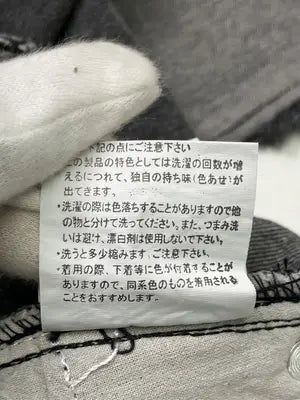 下記の点にご注意下さい
この製品の特色としては洗濯の回数が増
えるにつれて、独自の持ち味(色あせ)が
出てきます。
・洗濯の際は色落ちすることがありますので他
の物と分けて洗ってください。また、つまみ洗
いは避け、漂白剤は使用しないで下さい。
・洗うと多少縮みます、ご注意下さい。
・着用の際、下着等に色が付着することが
ありますので、同系色のものを着用される
ことをおすすめします。